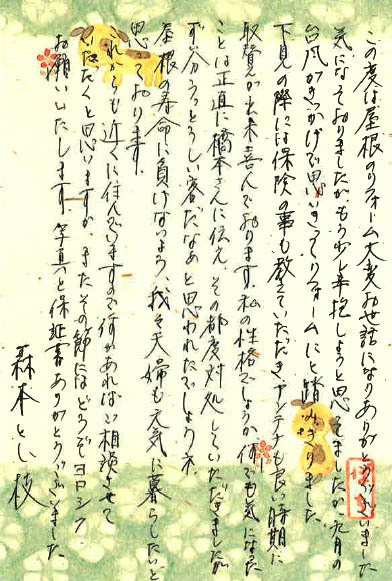 この度は屋根のリフォーム大変お世話になりありがとうございました
気になっておりましたがもう少し辛抱しようと思ってましたが九月の
台風がきっかけで思いきってリフォームにと踏みきりました。
下見の際には保険の事も教えていただきアンテナも良い時期に
取替が出来喜んでおります。私の性格でしょうか何でも気になった
ことは正直に橋本さんに伝え、その都度対処していただきましたが
ずい分うっとうしい客だなぁと思われたでしょうネ.
屋根の寿命に負けないよう、我々夫婦も元気に暮らしたいと
思っております.
これからも近くに住んでいますので何かあればご相談させて
いただくと思いますが、またその節にはどうぞヨロシク
お願いいたします. 写真と保証書ありがとうございました
森本とし枝